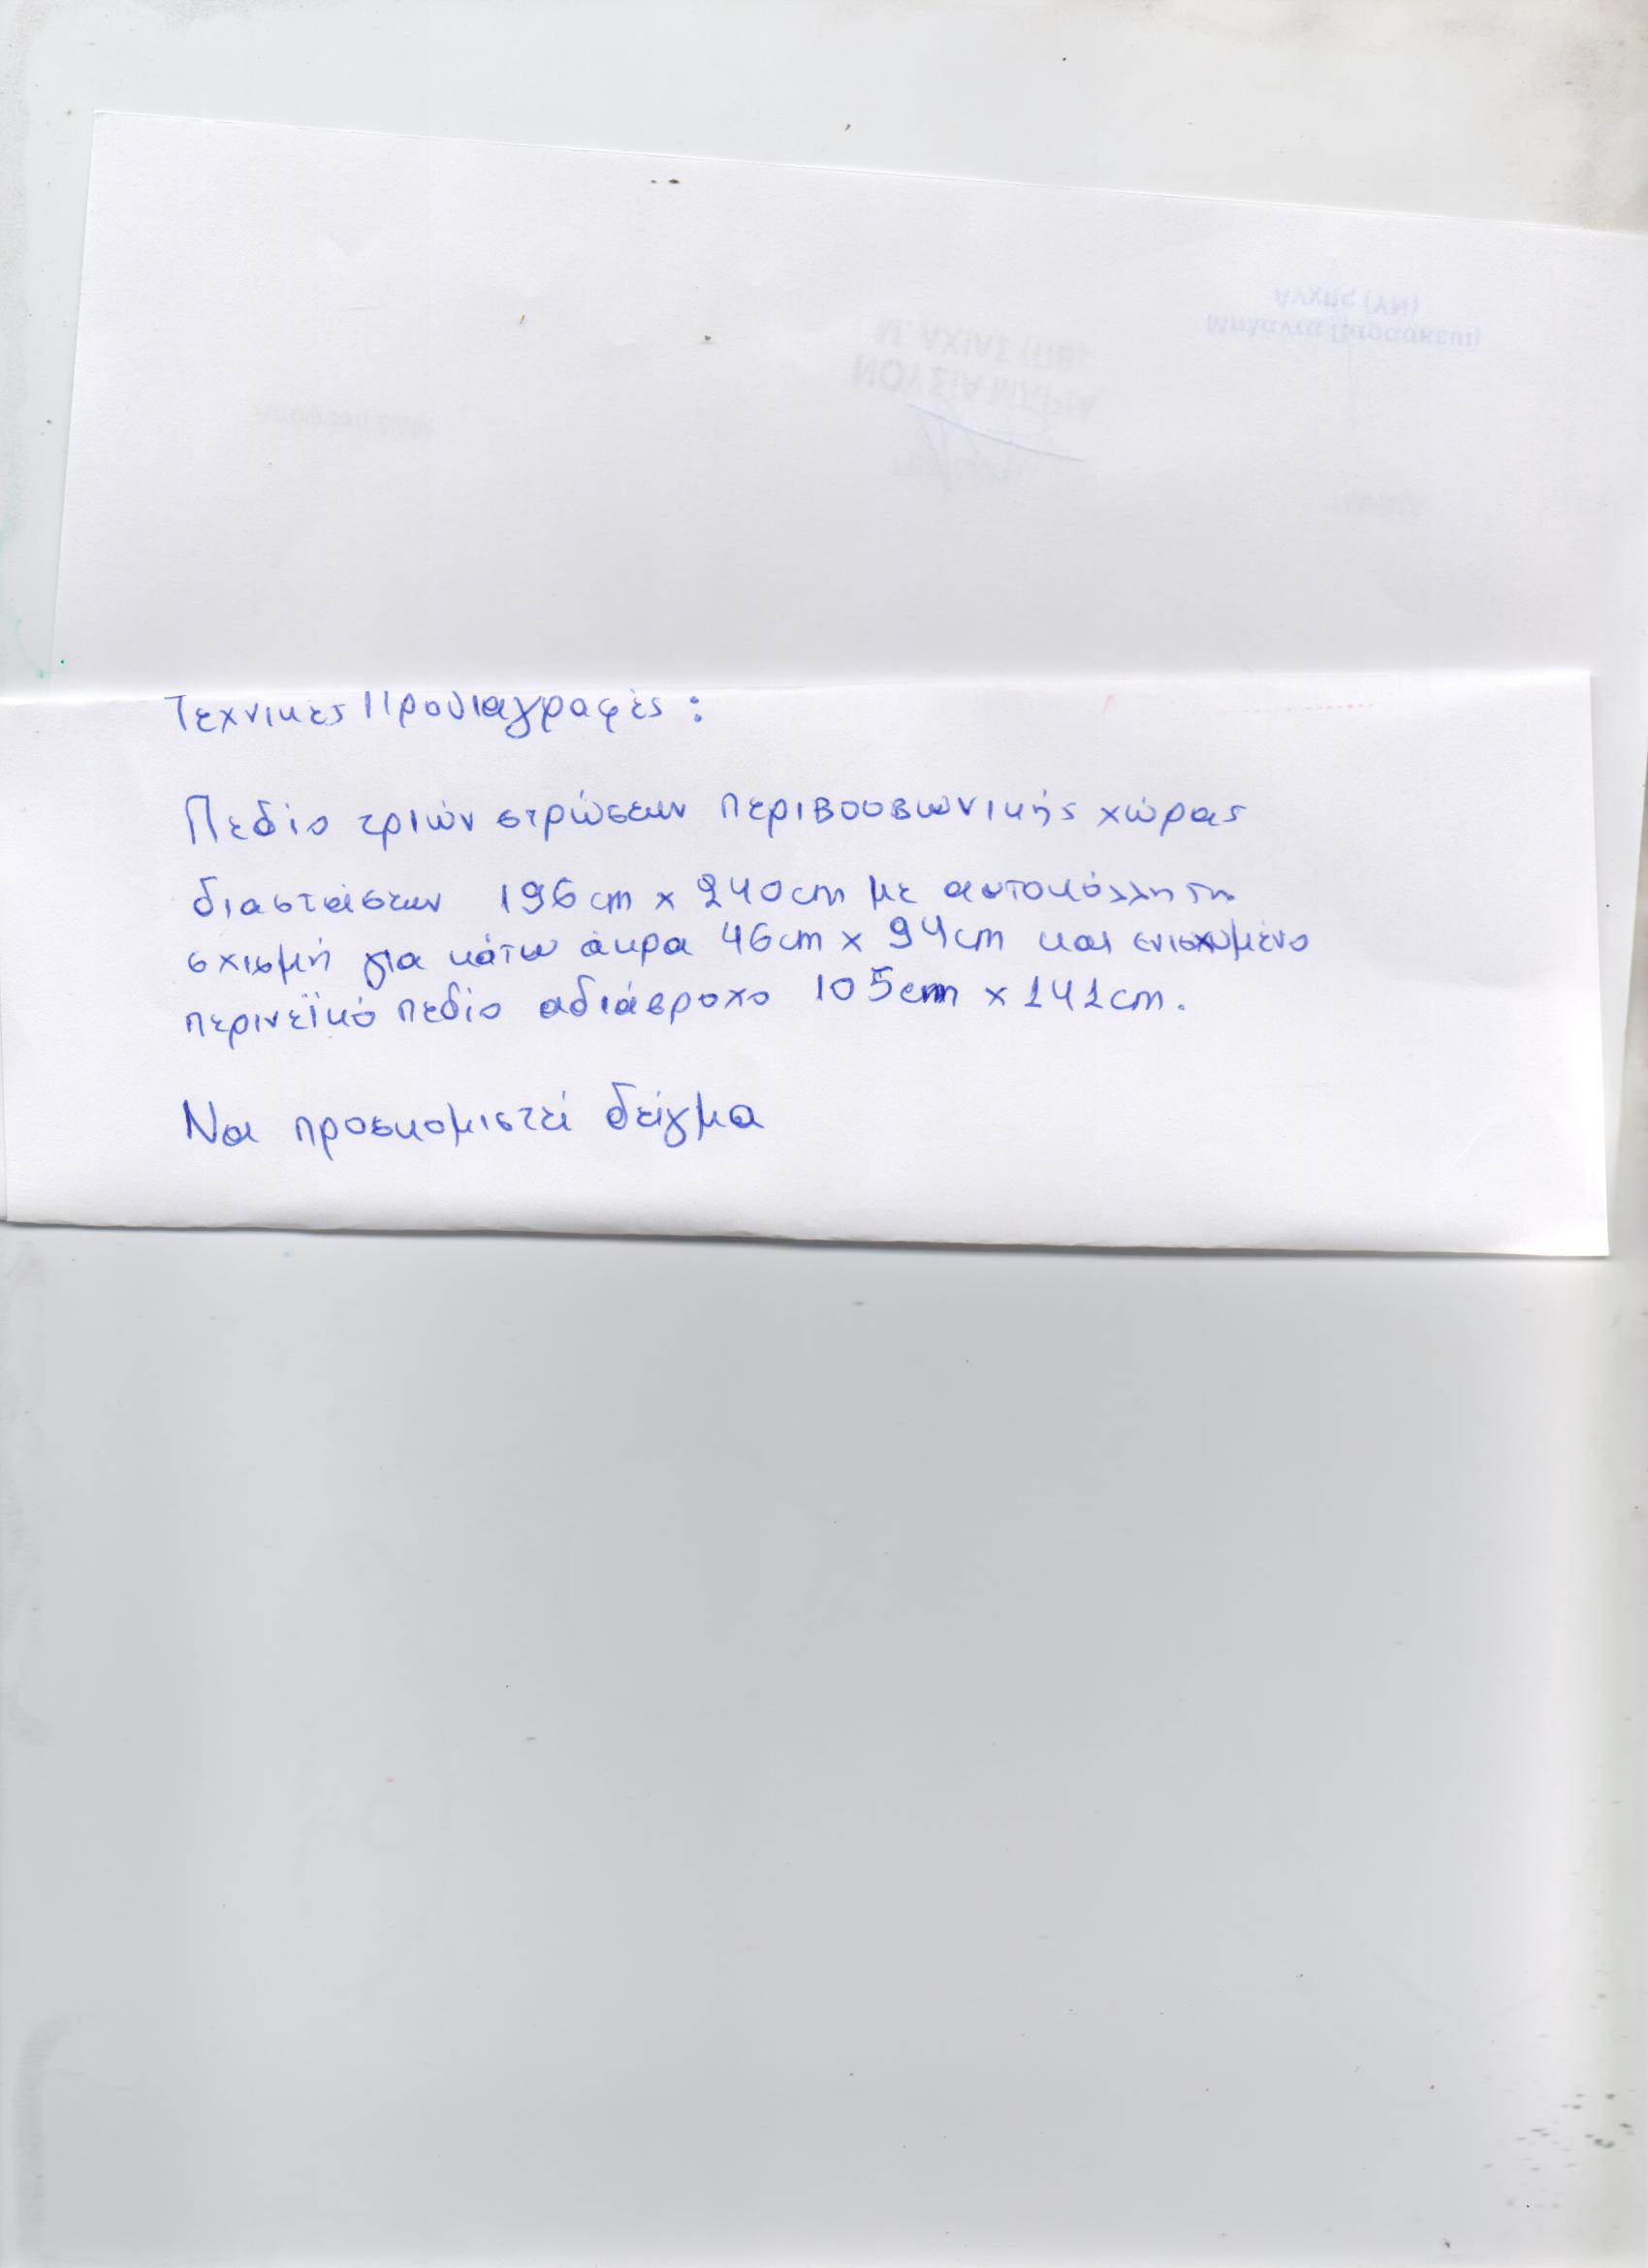 Τεχνικές Προδιαγραφές:
Πεδίο τριών στρώσεων περιβουβωνικής χώρας
διαστάσεων 196cm x 240cm με αυτοκόλλητη
σχισμή για κάτω άκρα 46cm x 94cm και ενισχυμένο
περινεϊκό πεδίο αδιάβροχο 105cm x 141cm.
Να προσκομιστεί δείγμα